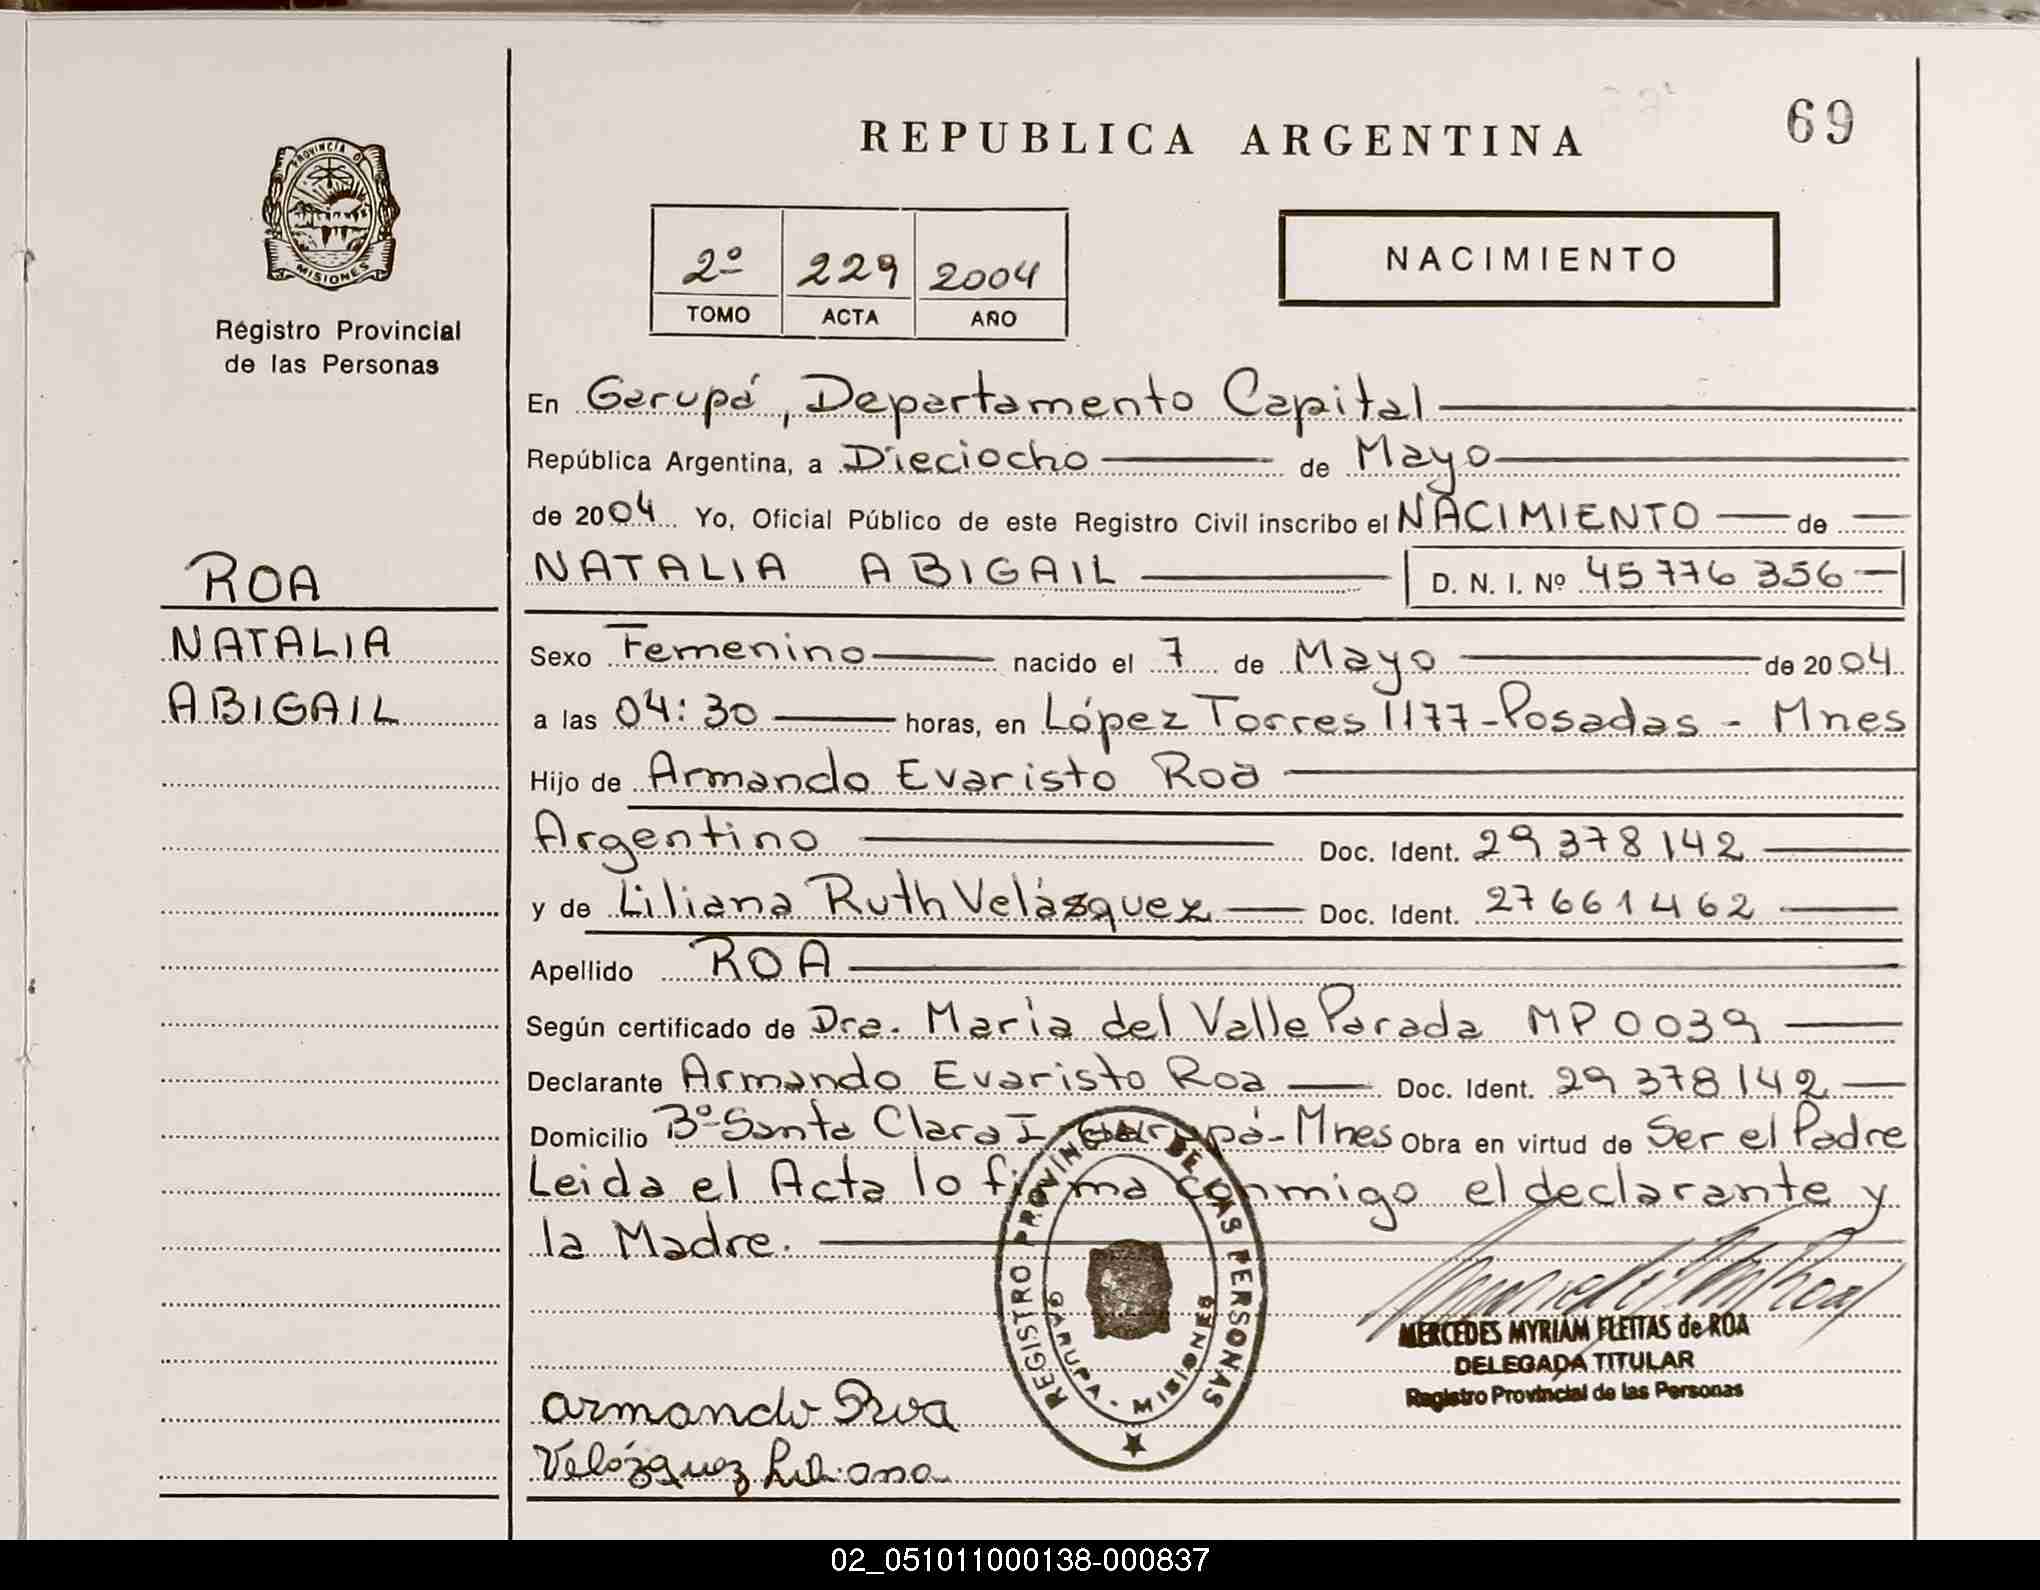 69
REPUBLICA ARGENTINA
PROVINCIA D
MISIONES
Régistro Provincial
de las Personas
2º 229 2004
TOMO ACTA AÑO
NACIMIENTO
En Garupá, Departamento Capital
República Argentina, a Dieciocho de Mayo
de 2004 Yo, Oficial Público de este Registro Civil inscribo el NACIMIENTO de
NATALIA ABIGAIL D. N. I. Nº 45776356
ROA
NATALIA
ABIGAIL
Sexo Femenino nacido el 7 de Mayo de 2004
a las 04:30 horas, en López Torres 1177-Posadas - Mnes
Hijo de Armando Evaristo Roa
Argentino Doc. Ident. 29378142
y de Liliana Ruth Velázquez Doc. Ident. 27661462
Apellido ROA
Según certificado de Dra. María del Valle Parada MP0039
Declarante Armando Evaristo Roa Doc. Ident. 29378142
Domicilio Bº Santa Clara I Garupá-Mnes Obra en virtud de Ser el Padre
Leida el Acta lo firma conmigo el declarante y
la Madre.
REGISTRO PROVINCIAL DE LAS PERSONAS
GARUPA - MISIONES
MERCEDES MYRIAM FLEITAS de ROA
DELEGADA TITULAR
Registro Provincial de las Personas
Armando Roa
Velázquez Liliana
02_051011000138-000837